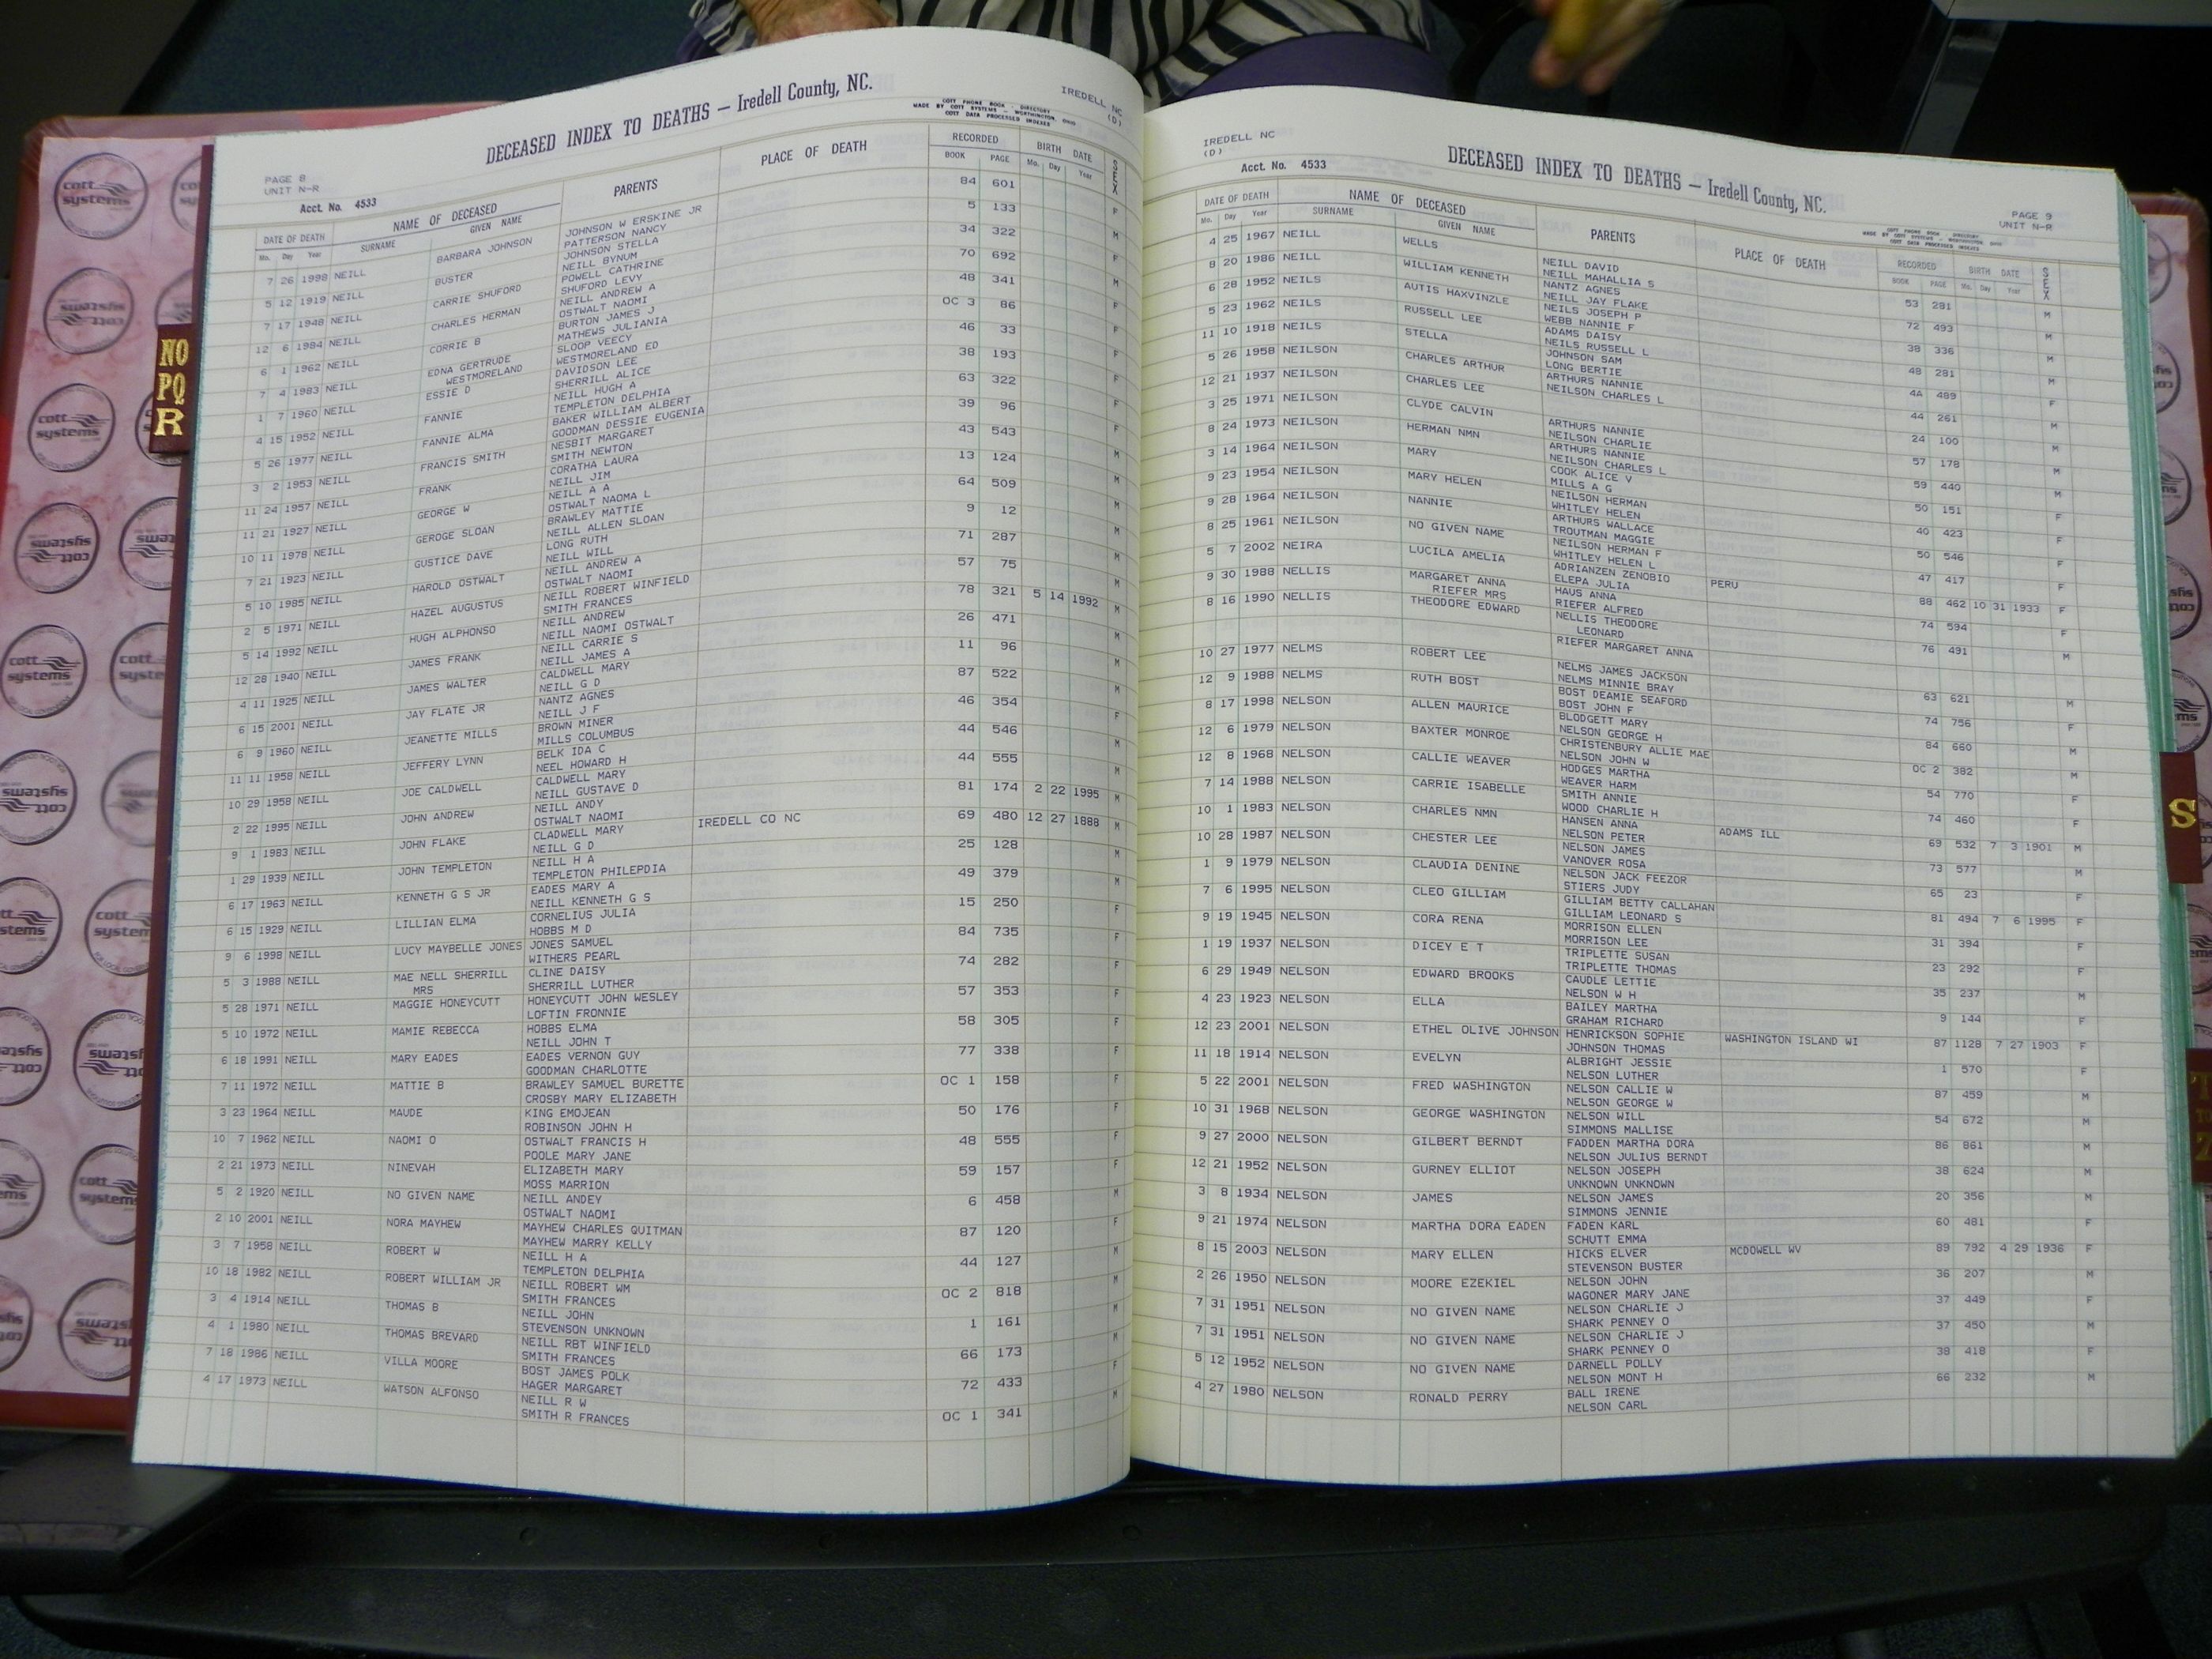 IREDELL NC
(D)
DECEASED INDEX TO DEATHS — Iredell County, NC.
COTT PHONE BOOK - DIRECTORY
MADE BY COTT SYSTEMS - WORTHINGTON, OHIO
COTT DATA PROCESSED INDEXES
PAGE 8
UNIT N-R
Acct. No. 4533
DATE OF DEATH NAME OF DECEASED PARENTS PLACE OF DEATH RECORDED BIRTH DATE SEX
Mo. Day Year SURNAME GIVEN NAME BOOK PAGE Mo. Day Year
7 26 1998 NEILL BARBARA JOHNSON JOHNSON W ERSKINE JR 84 601 F
PATTERSON NANCY
5 12 1919 NEILL BUSTER JOHNSON STELLA 5 133 M
NEILL BYNUM
7 17 1948 NEILL CARRIE SHUFORD POWELL CATHRINE 34 322 F
SHUFORD LEVY
12 6 1984 NEILL CHARLES HERMAN NEILL ANDREW A 70 692 M
OSTWALT NAOMI
6 1 1962 NEILL CORRIE B BURTON JAMES J 48 341 F
MATHEWS JULIANIA
7 4 1983 NEILL EDNA GERTRUDE SLOOP VEECY OC 3 86 F
WESTMORELAND WESTMORELAND ED
1 7 1960 NEILL ESSIE D DAVIDSON LEE 46 33 F
SHERRILL ALICE
4 15 1952 NEILL FANNIE NEILL HUGH A 38 193 F
TEMPLETON DELPHIA
5 26 1977 NEILL FANNIE ALMA BAKER WILLIAM ALBERT 63 322 F
GOODMAN DESSIE EUGENIA
3 2 1953 NEILL FRANCIS SMITH NESBIT MARGARET 39 96 F
SMITH NEWTON
11 24 1957 NEILL FRANK CORATHA LAURA 43 543 M
NEILL JIM
11 21 1927 NEILL GEORGE W NEILL A A 13 124 M
OSTWALT NAOMA L
10 11 1978 NEILL GEROGE SLOAN BRAWLEY MATTIE 64 509 M
NEILL ALLEN SLOAN
7 21 1923 NEILL GUSTICE DAVE LONG RUTH 9 12 M
NEILL WILL
5 10 1985 NEILL HAROLD OSTWALT NEILL ANDREW A 71 287 M
OSTWALT NAOMI
2 5 1971 NEILL HAZEL AUGUSTUS NEILL ROBERT WINFIELD 57 75 M
SMITH FRANCES
5 14 1992 NEILL HUGH ALPHONSO NEILL ANDREW 78 321 5 14 1992 M
NEILL NAOMI OSTWALT
12 28 1940 NEILL JAMES FRANK NEILL CARRIE S 26 471 M
NEILL JAMES A
4 11 1925 NEILL JAMES WALTER CALDWELL MARY 11 96 M
NEILL G D
6 15 2001 NEILL JAY FLATE JR NANTZ AGNES 87 522 M
NEILL J F
6 9 1960 NEILL JEANETTE MILLS BROWN MINER 46 354 F
MILLS COLUMBUS
11 11 1958 NEILL JEFFERY LYNN BELK IDA C 44 546 M
NEEL HOWARD H
10 29 1958 NEILL JOE CALDWELL CALDWELL MARY 44 555 M
NEILL GUSTAVE D
2 22 1995 NEILL JOHN ANDREW NEILL ANDY 81 174 2 22 1995 M
OSTWALT NAOMI
9 1 1983 NEILL JOHN FLAKE CLADWELL MARY IREDELL CO NC 69 480 12 27 1888 M
NEILL G D
1 29 1939 NEILL JOHN TEMPLETON NEILL H A 25 128 M
TEMPLETON PHILEPDIA
6 17 1963 NEILL KENNETH G S JR EADES MARY A 49 379 M
NEILL KENNETH G S
6 15 1929 NEILL LILLIAN ELMA CORNELIUS JULIA 15 250 F
HOBBS M D
9 6 1998 NEILL LUCY MAYBELLE JONES JONES SAMUEL 84 735 F
WITHERS PEARL
5 3 1988 NEILL MAE NELL SHERRILL CLINE DAISY 74 282 F
MRS SHERRILL LUTHER
5 28 1971 NEILL MAGGIE HONEYCUTT HONEYCUTT JOHN WESLEY 57 353 F
LOFTIN FRONNIE
5 10 1972 NEILL MAMIE REBECCA HOBBS ELMA 58 305 F
NEILL JOHN T
6 18 1991 NEILL MARY EADES EADES VERNON GUY 77 338 F
GOODMAN CHARLOTTE
7 11 1972 NEILL MATTIE B BRAWLEY SAMUEL BURETTE OC 1 158 F
CROSBY MARY ELIZABETH
3 23 1964 NEILL MAUDE KING EMOJEAN 50 176 F
ROBINSON JOHN H
10 7 1962 NEILL NAOMI O OSTWALT FRANCIS H 48 555 F
POOLE MARY JANE
2 21 1973 NEILL NINEVAH ELIZABETH MARY 59 157
MOSS MARRION
5 2 1920 NEILL NO GIVEN NAME NEILL ANDEY 6 458 M
OSTWALT NAOMI
2 10 2001 NEILL NORA MAYHEW MAYHEW CHARLES QUITMAN 87 120 F
MAYHEW MARRY KELLY
3 7 1958 NEILL ROBERT W NEILL H A 44 127 M
TEMPLETON DELPHIA
10 18 1982 NEILL ROBERT WILLIAM JR NEILL ROBERT WM OC 2 818 M
SMITH FRANCES
3 4 1914 NEILL THOMAS B NEILL JOHN 1 161 M
STEVENSON UNKNOWN
4 1 1980 NEILL THOMAS BREVARD NEILL RBT WINFIELD 66 173 M
SMITH FRANCES
7 18 1986 NEILL VILLA MOORE BOST JAMES POLK 72 433 F
HAGER MARGARET
4 17 1973 NEILL WATSON ALFONSO NEILL R W OC 1 341 M
SMITH R FRANCES
IREDELL NC
(D)
Acct. No. 4533
DECEASED INDEX TO DEATHS — Iredell County, NC.
PAGE 9
UNIT N-R
DATE OF DEATH NAME OF DECEASED PARENTS PLACE OF DEATH RECORDED BIRTH DATE SEX
Mo. Day Year SURNAME GIVEN NAME BOOK PAGE Mo. Day Year
4 25 1967 NEILL WELLS NEILL DAVID 53 281 M
NEILL MAHALLIA S
8 20 1986 NEILL WILLIAM KENNETH NANTZ AGNES 72 493 M
NEILL JAY FLAKE
6 28 1952 NEILS AUTIS HAXVINZLE NEILS JOSEPH P 38 336 M
WEBB NANNIE F
5 23 1962 NEILS RUSSELL LEE ADAMS DAISY 48 281 M
NEILS RUSSELL L
11 10 1918 NEILS STELLA JOHNSON SAM 4A 489 F
LONG BERTIE
5 26 1958 NEILSON CHARLES ARTHUR ARTHURS NANNIE 44 261 M
NEILSON CHARLES L
12 21 1937 NEILSON CHARLES LEE 24 100 M
3 25 1971 NEILSON CLYDE CALVIN ARTHURS NANNIE 57 178 M
NEILSON CHARLIE
8 24 1973 NEILSON HERMAN NMN ARTHURS NANNIE 59 440 M
NEILSON CHARLES L
3 14 1964 NEILSON MARY COOK ALICE V 50 151 F
MILLS A G
9 23 1954 NEILSON MARY HELEN NEILSON HERMAN 40 423 F
WHITLEY HELEN
9 28 1964 NEILSON NANNIE ARTHURS WALLACE 50 546 F
TROUTMAN MAGGIE
8 25 1961 NEILSON NO GIVEN NAME NEILSON HERMAN F 47 417 F
WHITLEY HELEN L
5 7 2002 NEIRA LUCILA AMELIA ADRIANZEN ZENOBIO PERU 88 462 10 31 1933 F
ELEPA JULIA
9 30 1988 NELLIS MARGARET ANNA HAUS ANNA 74 594 F
RIEFER MRS RIEFER ALFRED
8 16 1990 NELLIS THEODORE EDWARD NELLIS THEODORE 76 491 M
LEONARD
RIEFER MARGARET ANNA
10 27 1977 NELMS ROBERT LEE NELMS JAMES JACKSON 63 621 M
NELMS MINNIE BRAY
12 9 1988 NELMS RUTH BOST BOST DEAMIE SEAFORD 74 756 F
BOST JOHN F
8 17 1998 NELSON ALLEN MAURICE BLODGETT MARY 84 660 M
NELSON GEORGE H
12 6 1979 NELSON BAXTER MONROE CHRISTENBURY ALLIE MAE OC 2 382 M
NELSON JOHN W
12 8 1968 NELSON CALLIE WEAVER HODGES MARTHA 54 770 F
WEAVER HARM
7 14 1988 NELSON CARRIE ISABELLE SMITH ANNIE 74 460 F
WOOD CHARLIE H
10 1 1983 NELSON CHARLES NMN HANSEN ANNA ADAMS ILL 69 532 7 3 1901 M
NELSON PETER
10 28 1987 NELSON CHESTER LEE NELSON JAMES 73 577 M
VANOVER ROSA
1 9 1979 NELSON CLAUDIA DENINE NELSON JACK FEEZOR 65 23 F
STIERS JUDY
7 6 1995 NELSON CLEO GILLIAM GILLIAM BETTY CALLAHAN 81 494 7 6 1995 F
GILLIAM LEONARD S
9 19 1945 NELSON CORA RENA MORRISON ELLEN 31 394 F
MORRISON LEE
1 19 1937 NELSON DICEY E T TRIPLETTE SUSAN 23 292 F
TRIPLETTE THOMAS
6 29 1949 NELSON EDWARD BROOKS CAUDLE LETTIE 35 237 M
NELSON W H
4 23 1923 NELSON ELLA BAILEY MARTHA 9 144 F
GRAHAM RICHARD
12 23 2001 NELSON ETHEL OLIVE JOHNSON HENRICKSON SOPHIE WASHINGTON ISLAND WI 87 1128 7 27 1903 F
JOHNSON THOMAS
11 18 1914 NELSON EVELYN ALBRIGHT JESSIE 1 570 F
NELSON LUTHER
5 22 2001 NELSON FRED WASHINGTON NELSON CALLIE W 87 459 M
NELSON GEORGE W
10 31 1968 NELSON GEORGE WASHINGTON NELSON WILL 54 672 M
SIMMONS MALLISE
9 27 2000 NELSON GILBERT BERNDT FADDEN MARTHA DORA 86 861 M
NELSON JULIUS BERNDT
12 21 1952 NELSON GURNEY ELLIOT NELSON JOSEPH 38 624 M
UNKNOWN UNKNOWN
3 8 1934 NELSON JAMES NELSON JAMES 20 356 M
SIMMONS JENNIE
9 21 1974 NELSON MARTHA DORA EADEN FADEN KARL 60 481 F
SCHUTT EMMA
8 15 2003 NELSON MARY ELLEN HICKS ELVER MCDOWELL WV 89 792 4 29 1936 F
STEVENSON BUSTER
2 26 1950 NELSON MOORE EZEKIEL NELSON JOHN 36 207 M
WAGONER MARY JANE
7 31 1951 NELSON NO GIVEN NAME NELSON CHARLIE J 37 449 F
SHARK PENNEY O
7 31 1951 NELSON NO GIVEN NAME NELSON CHARLIE J 37 450 M
SHARK PENNEY O
5 12 1952 NELSON NO GIVEN NAME DARNELL POLLY 38 418 F
NELSON MONT H
4 27 1980 NELSON RONALD PERRY BALL IRENE 66 232 M
NELSON CARL
NO
PQ
R
S
cott
systems